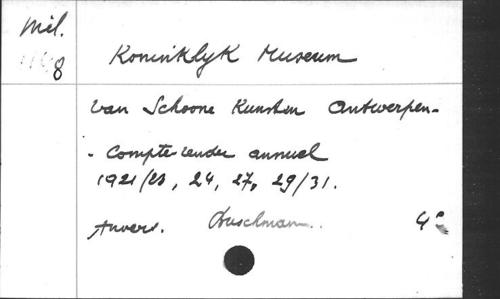 Mil.
8
Koninklyk Museum
Van Schoone Kunsten Antwerpen-
- Compte rendu annuel
1921/23, 24, 27, 29/31.
Anvers. Buschmann. 4°